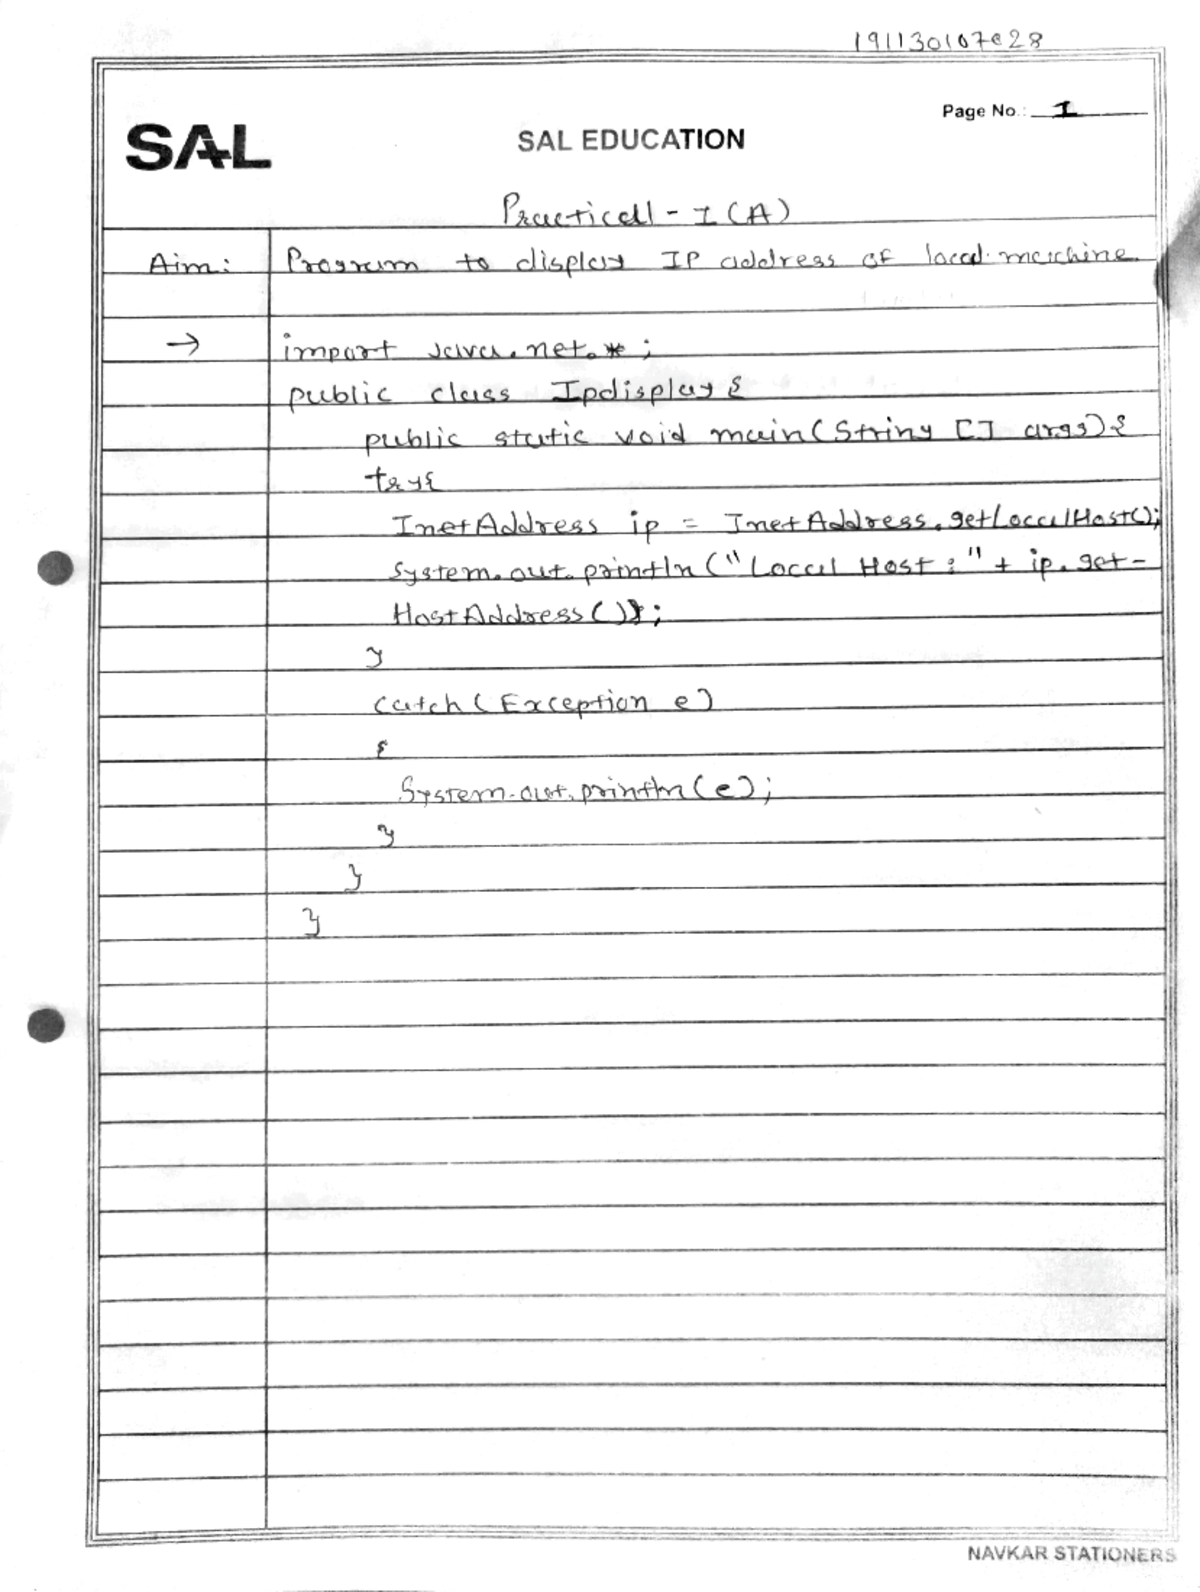 191130107028
Page No.: 1
SAL
SAL EDUCATION
Practical - 1 (A)
Aim: Program to display IP address of local machine.
→ import java.net.*;
public class Ipdisplay{
public static void main(String [] args){
try{
InetAddress ip = InetAddress.getLocalHost();
System.out.println("Local Host :" + ip.get-
HostAddress());
}
catch(Exception e)
{
System.out.println(e);
}
}
}
NAVKAR STATIONERS